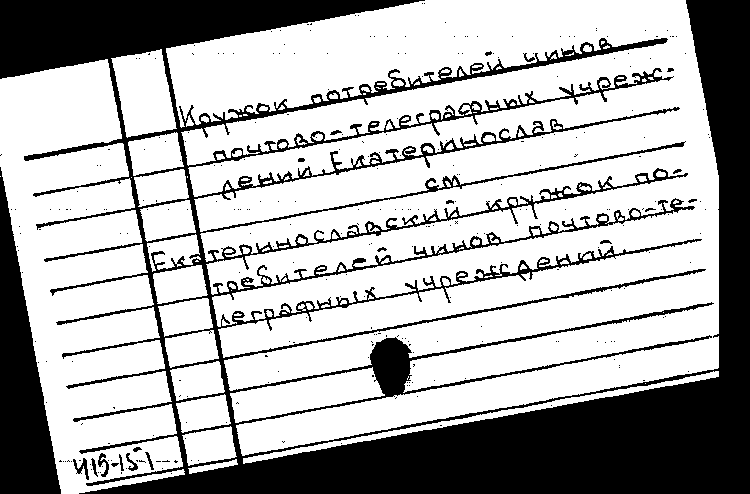 Кружок потребителей чинов
почтово-телеграфных учреж-
дений. Екатеринослав
см
Екатеринославский кружок по-
требителей чинов почтово-те-
леграфных учреждений.
415-15-1